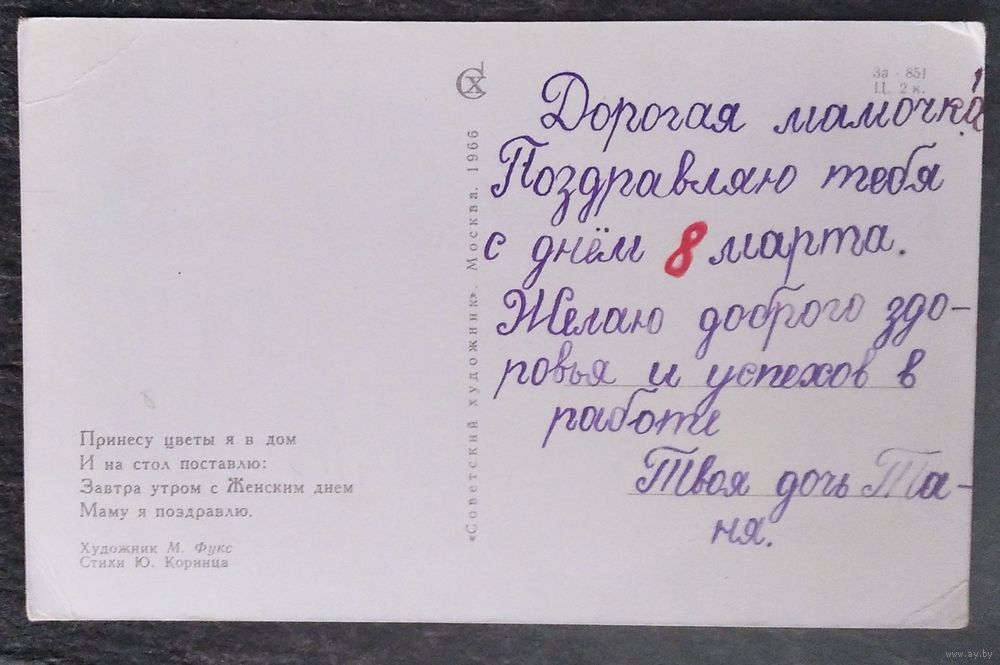 Принесу цветы я в дом
И на стол поставлю:
Завтра утром с Женским днем
Маму я поздравлю.
Художник М. Фукс
Стихи Ю. Коринца
«Советский художник». Москва. 1966
СХ
За - 851
Ц. 2 к.
Дорогая мамочка!
Поздравляю тебя
с днём 8 марта.
Желаю доброго здо-
ровья и успехов в
работе
Твоя дочь Та-
ня.
www.ay.by